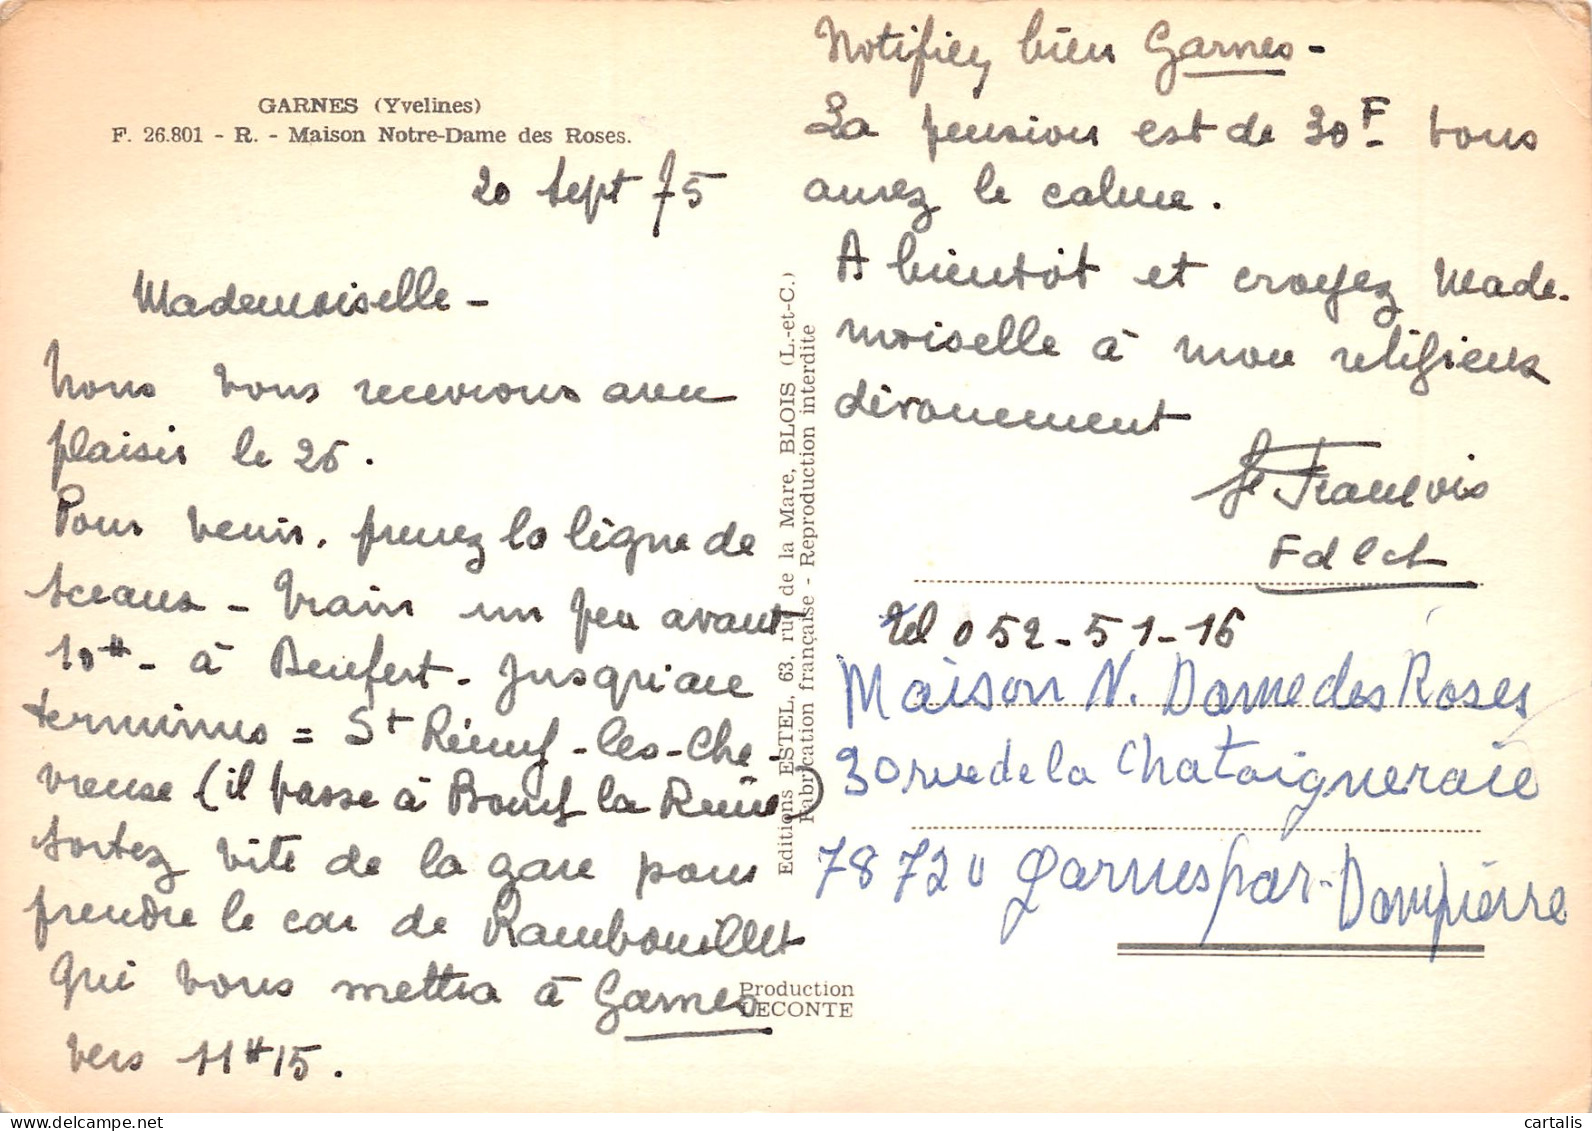 GARNES (Yvelines)
F. 26.801 - R. - Maison Notre-Dame des Roses.
20 Sept 75
Mademoiselle -
Nous vous recevrons avec
plaisir le 26.
Pour venir, prenez la ligne de
Sceaux - train un peu avant
10H - à Denfert - jusqu'au
terminus = St Rémy-les-Che-
vreuse (il passe à Bourg la Reine)
Sortez vite de la gare pour
prendre le car de Rambouillet
qui vous mettra à Garnes
vers 11H15.
Editions ESTEL, 63, rue de la Mare, BLOIS (L.-et-C.)
Fabrication française - Reproduction interdite
Production
LECONTE
Notifiez bien Garnes -
La pension est de 30F - vous
aurez le calme.
A bientôt et croyez Made-
moiselle à mon religieux
dévouement
Sr François
Fdlcl
Tel 052-51-16
Maison N. Dame des Roses
30 rue de la Chataigneraie
78720 Garnes par-Dampierre
cartalis